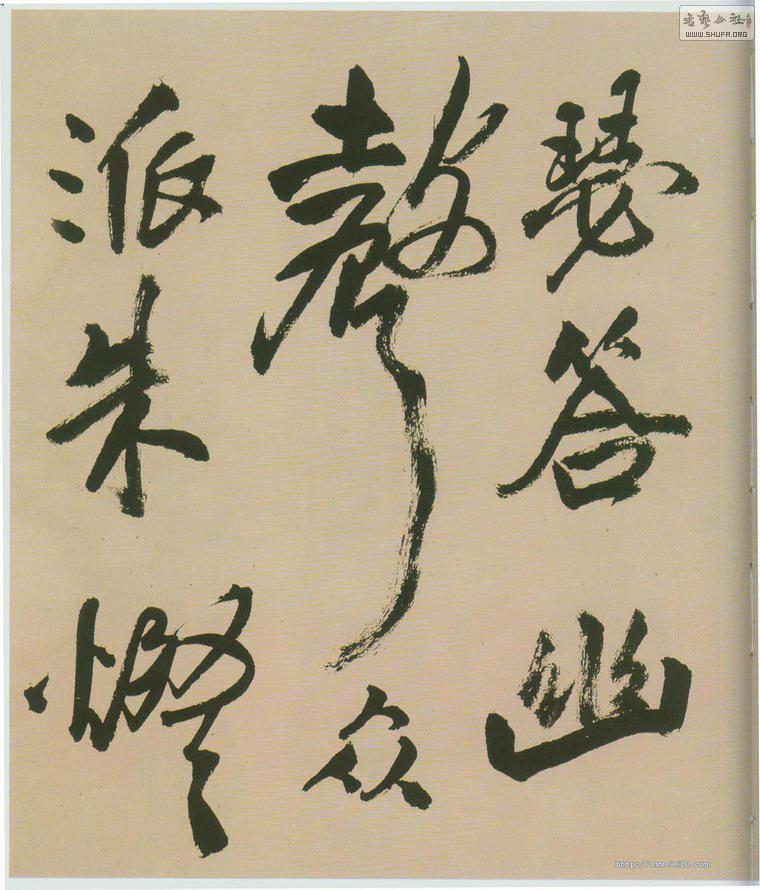 瑟答幽
聲众
派朱燈
書藝公社
WWW.SHUFA.ORG
http://www.9610.com